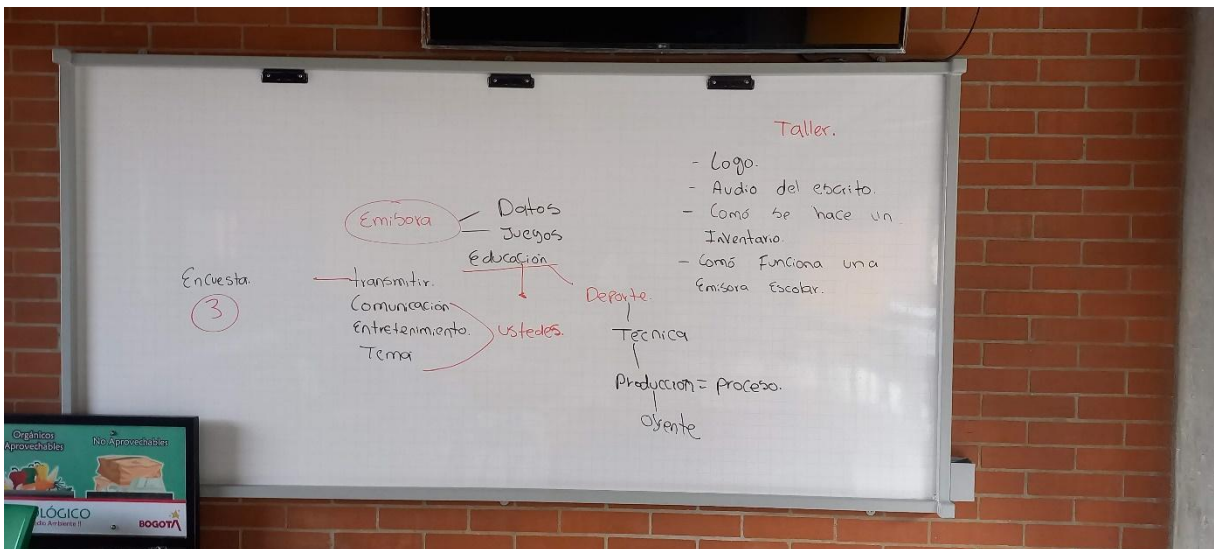 Taller.
- Logo.
- Audio del escrito.
- Como se hace un
Inventario.
- Como Funciona una
Emisora Escolar.
Emisora
Datos
Juegos
Educación
Encuesta.
3
transmitir.
Comunicación
Entretenimiento.
Tema
ustedes.
Deporte.
Tecnica
Produccion = Proceso.
Oyente
Orgánicos
Aprovechables
No Aprovechables
LÓGICO
BOGOTÁ